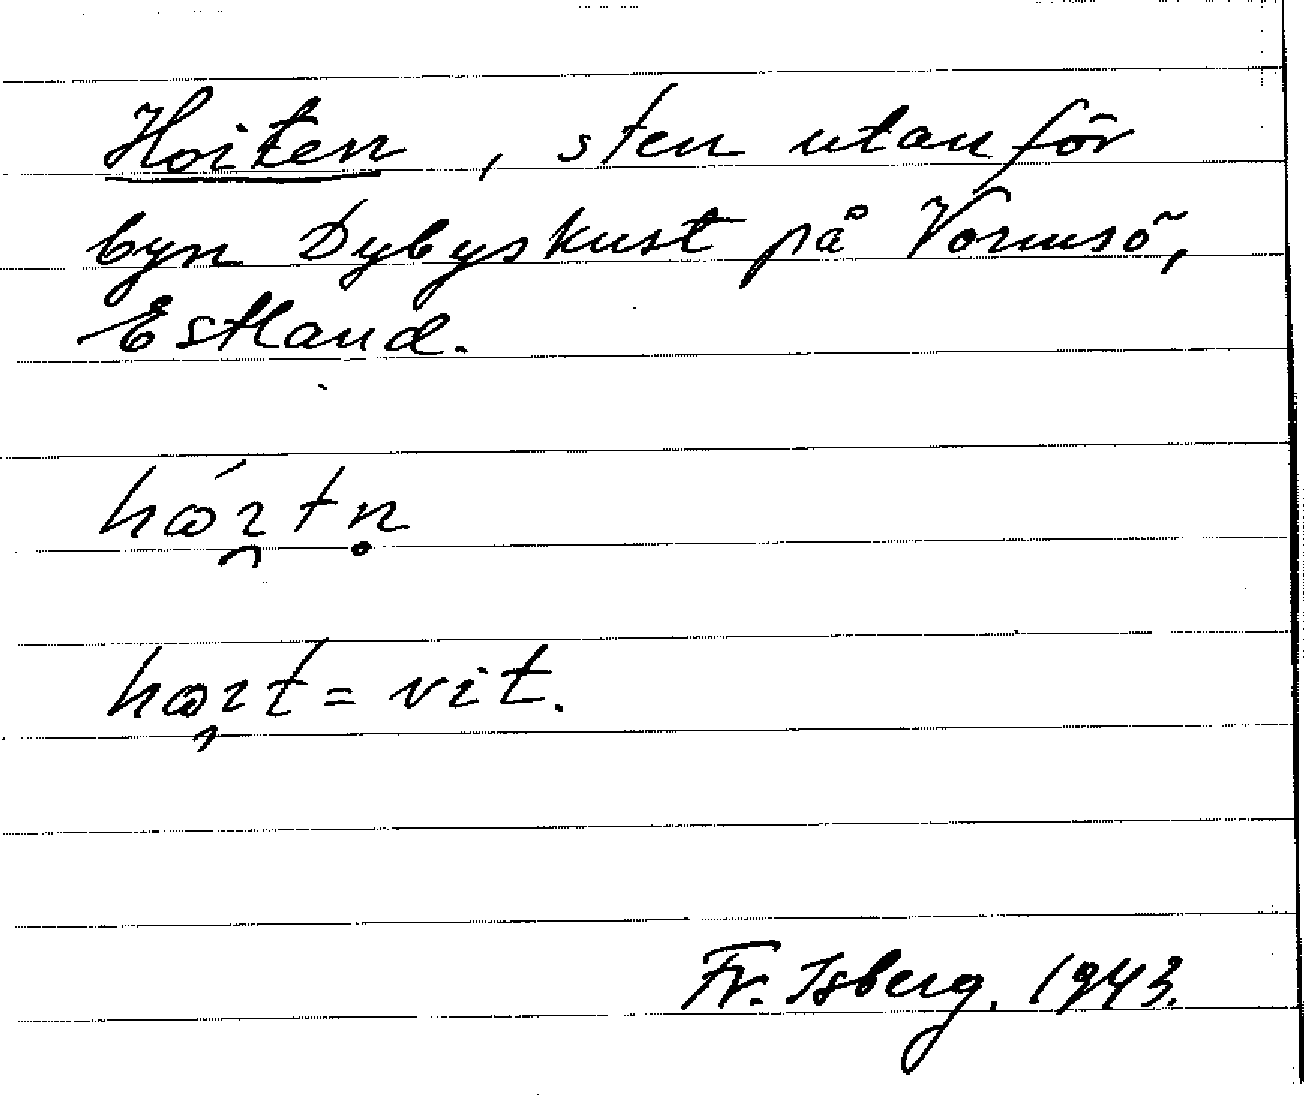 Hoiten, sten utanför
byn Dybyskust på Vormsö,
Estland.
= vit.
Fr. Isberg. 1943.